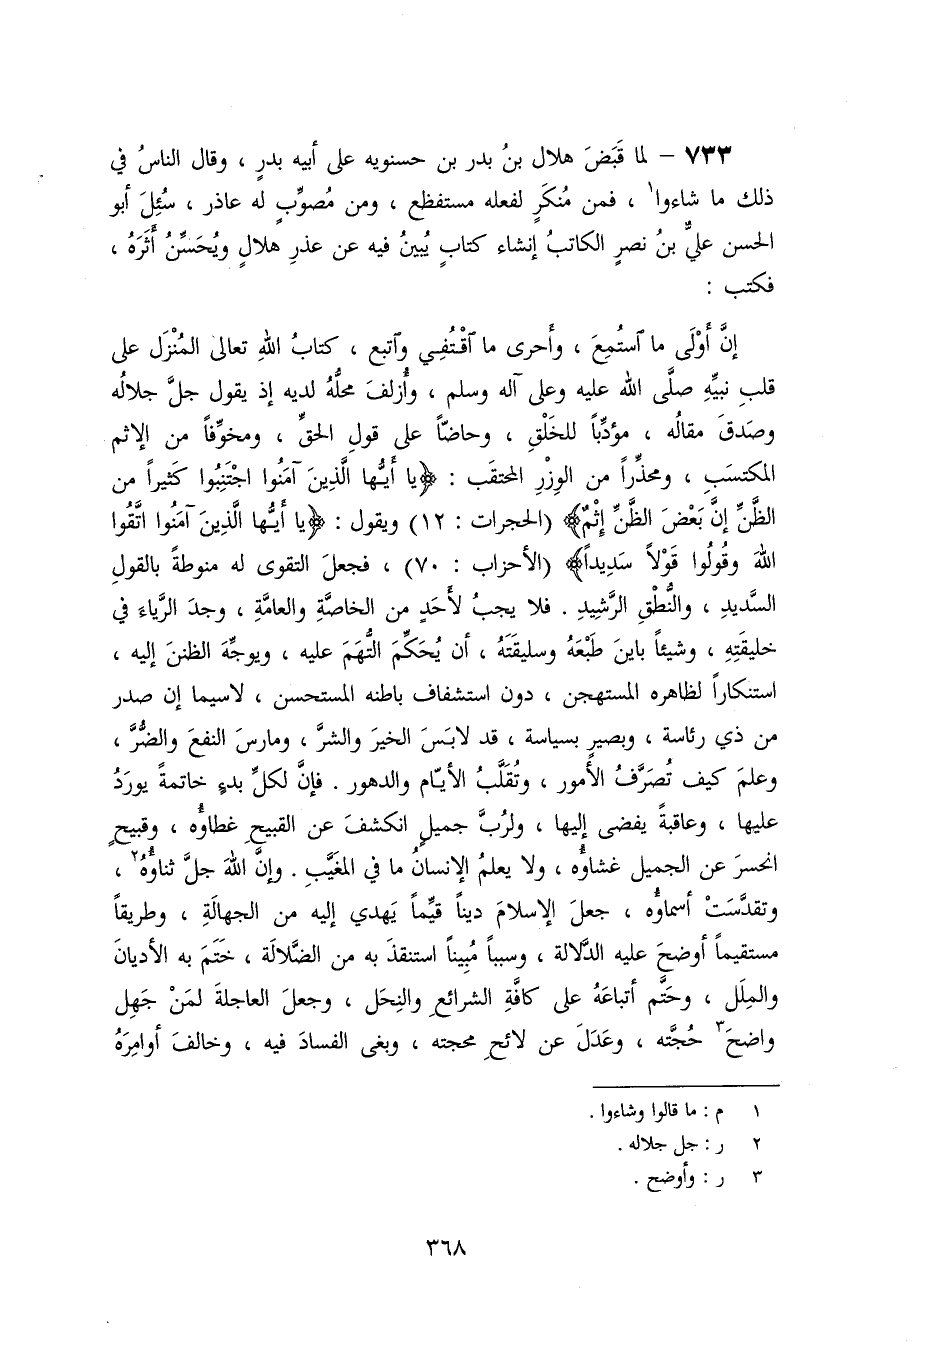 ٧٣٣ – لما قَبَضَ هلال بنُ بدر بن حسنويه على أبيه بدرٍ ، وقال الناسُ في
ذلك ما شاءوا١ ، فمن مُنكَرٍ لفعله مستفظع ، ومن مُصوِّبٍ له عاذر ، سئِلَ أبو
الحسن عليٌّ بنُ نصرٍ الكاتبُ إنشاء كتابٍ يُبينُ فيه عن عذرِ هلالٍ ويُحَسِّنُ أَثَرَهُ ،
فكتب :
إنَّ أَوْلَى ما ٱستُمِعَ ، وأَحرى ما ٱقْتُفِي وٱتبع ، كتابُ اللهِ تعالى المُنْزَل على
قلبِ نبيِّهِ صلَّى الله عليه وعلى آله وسلم ، وأُزلفَ محلُّهُ لديه إذ يقول جلَّ جلالُه
وصَدقَ مقالُه ، مؤدِّباً للخَلْقِ ، وحاضّاً على قولِ الحقِّ ، ومخوِّفاً من الإثم
المكتسَبِ ، ومحذِّراً من الوِزْرِ المحتقَب : ﴿يا أَيـُّها الَّذِينَ آمَنُوا اجْتَنِبُوا كَثيراً من
الظَّنِّ إنَّ بَعْضَ الظَّنِّ إثْمٌ﴾ (الحجرات : ١٢) ويقول : ﴿يا أَيـُّها الَّذِينَ آمَنُوا اتَّقُوا
اللهَ وقُولُوا قَوْلاً سَدِيداً﴾ (الأحزاب : ٧٠) ، فجعلَ التقوى له منوطةً بالقولِ
السَّديدِ ، والنُّطْقِ الرَّشِيدِ . فلا يجبُ لأَحَدٍ من الخاصَّةِ والعامَّةِ ، وجدَ الرِّياءَ في
خليقَتِهِ ، وشيئاً باينَ طَبْعَهُ وسليقَتَهُ ، أن يُحَكِّمَ التُّهَمَ عليه ، ويوجِّهَ الظننَ إليه ،
استنكاراً لظاهره المستهجن ، دون استشفاف باطنه المستحسن ، لاسيما إن صدر
من ذي رئاسة ، وبصيرٍ بسياسة ، قد لابَسَ الخيرَ والشرَّ ، ومارسَ النفعَ والضُّرَّ ،
وعلمَ كيف تُصَرَّفُ الأمور ، وتُقَلَّبُ الأيّام والدهور . فإنَّ لكلِّ بدءٍ خاتمةً يورَدُ
عليها ، وعاقبةً يفضى إليها ، ولرُبَّ جميلٍ انكشفَ عن القبيحِ غطاؤُه ، وقبيحٍ
انحسرَ عن الجميل غشاؤُه ، ولا يعلمُ الإنسانُ ما في المغَيَّبِ . وإنَّ اللهَ جلَّ ثناؤُهُ٢ ،
وتقدَّسَتْ أسماؤُه ، جعلَ الإسلامَ ديناً قيِّماً يَهدي إليه من الجهالَةِ ، وطريقاً
مستقيماً أوضحَ عليه الدَّلالة ، وسبباً مُبِيناً استنقذَ به من الضَّلالَة ، خَتَمَ به الأديانَ
والمِلَل ، وحَتَّم أتباعَهُ على كافَّةِ الشرائعِ والنِحَل ، وجعلَ العاجلةَ لمَنْ جَهِل
واضحَ٣ حُجَّته ، وعَدَلَ عن لائحِ محجته ، وبغى الفسادَ فيه ، وخالفَ أوامِرَهُ
١ م : ما قالوا وشاءوا .
٢ ر : جل جلاله .
٣ ر : وأوضح .
٣٦٨